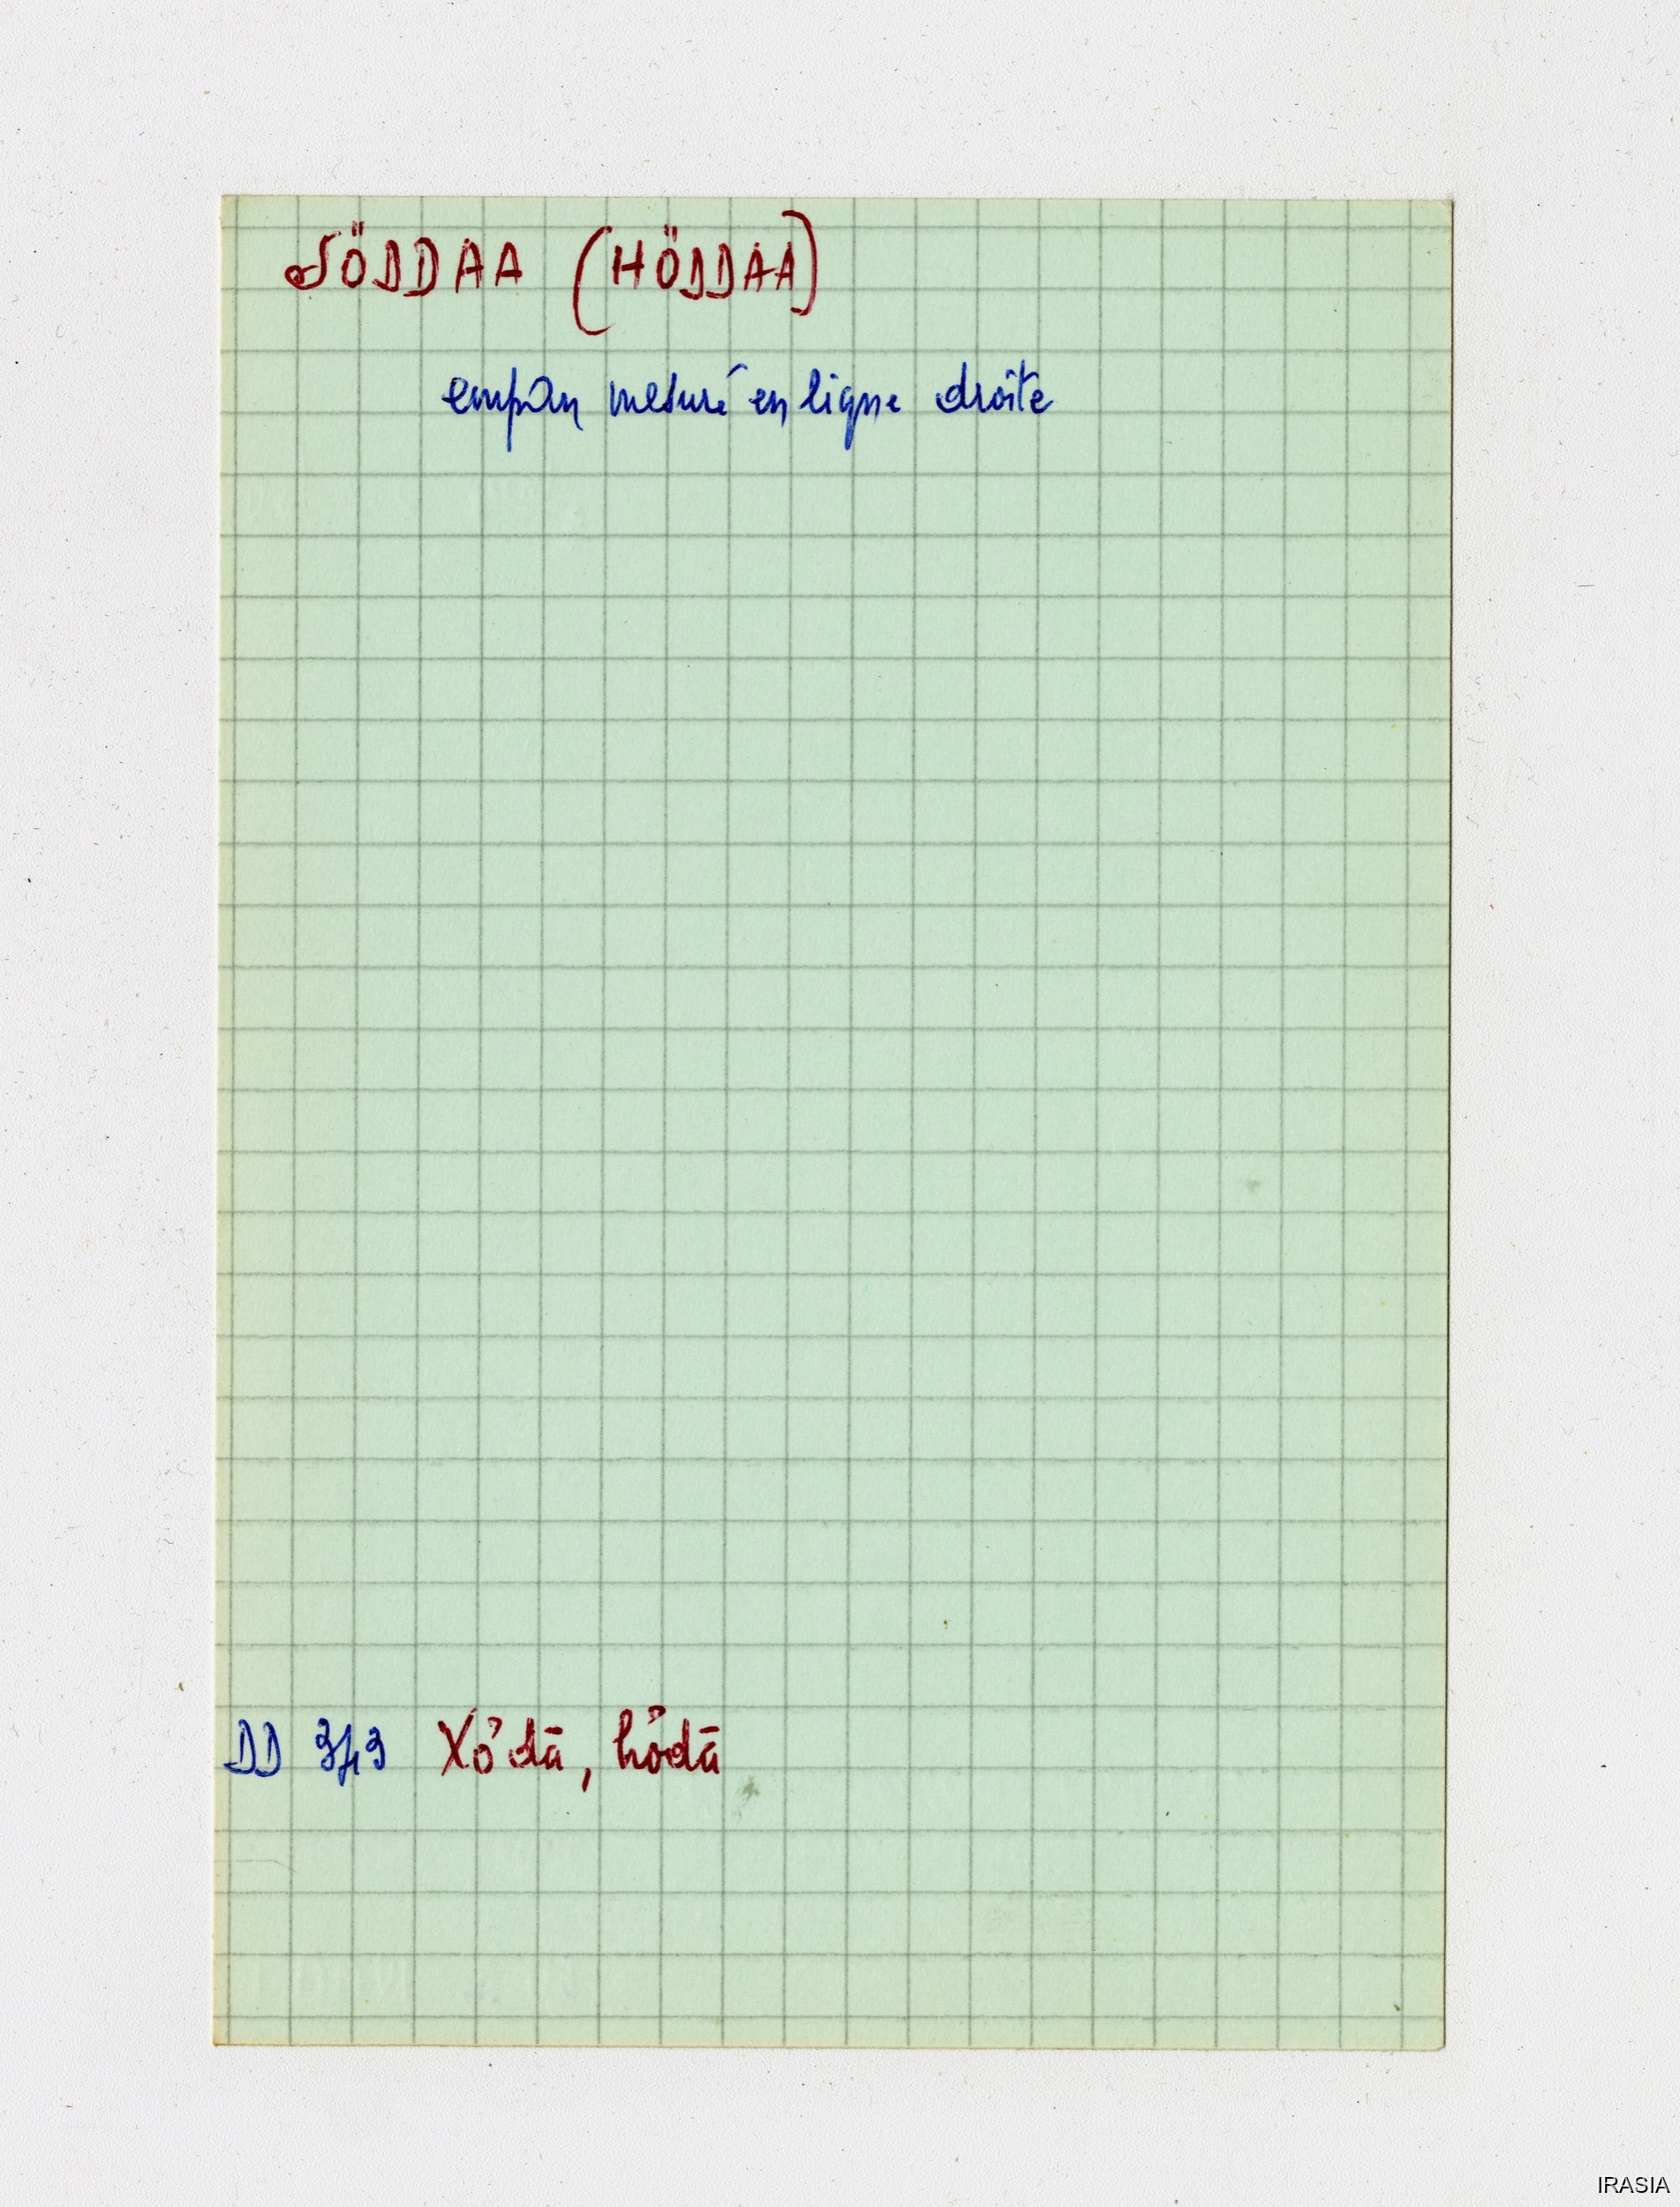 SÖDDAA (HÖDDAA)
empan mesuré en ligne droite
DD 343 Xö̆dā, hö̆dā
IRASIA